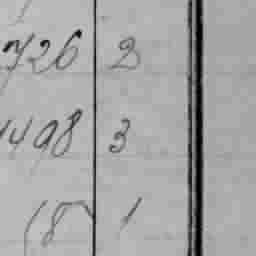 726 2
498 3
(8 1